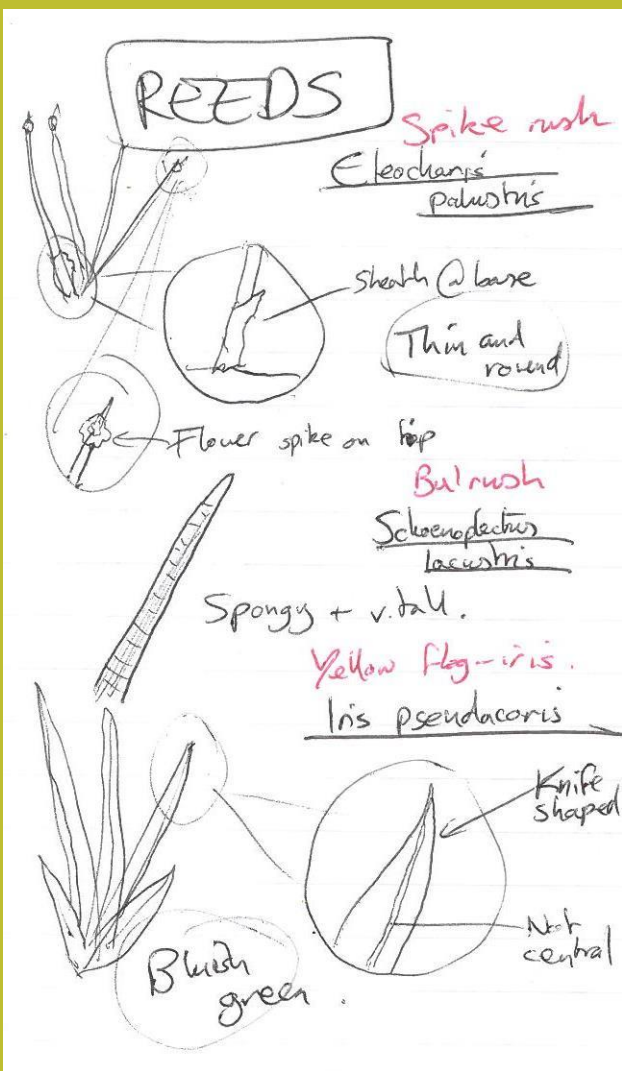 REEDS
Spike rush
Eleocharis
palustris
Sheath @ base
Thin and
round
Flower spike on top
Bulrush
Schoenoplectus
lacustris
Spongy + v. tall.
Yellow flag-iris.
Iris pseudacoris
Knife
shaped
Not
central
Bluish
green.